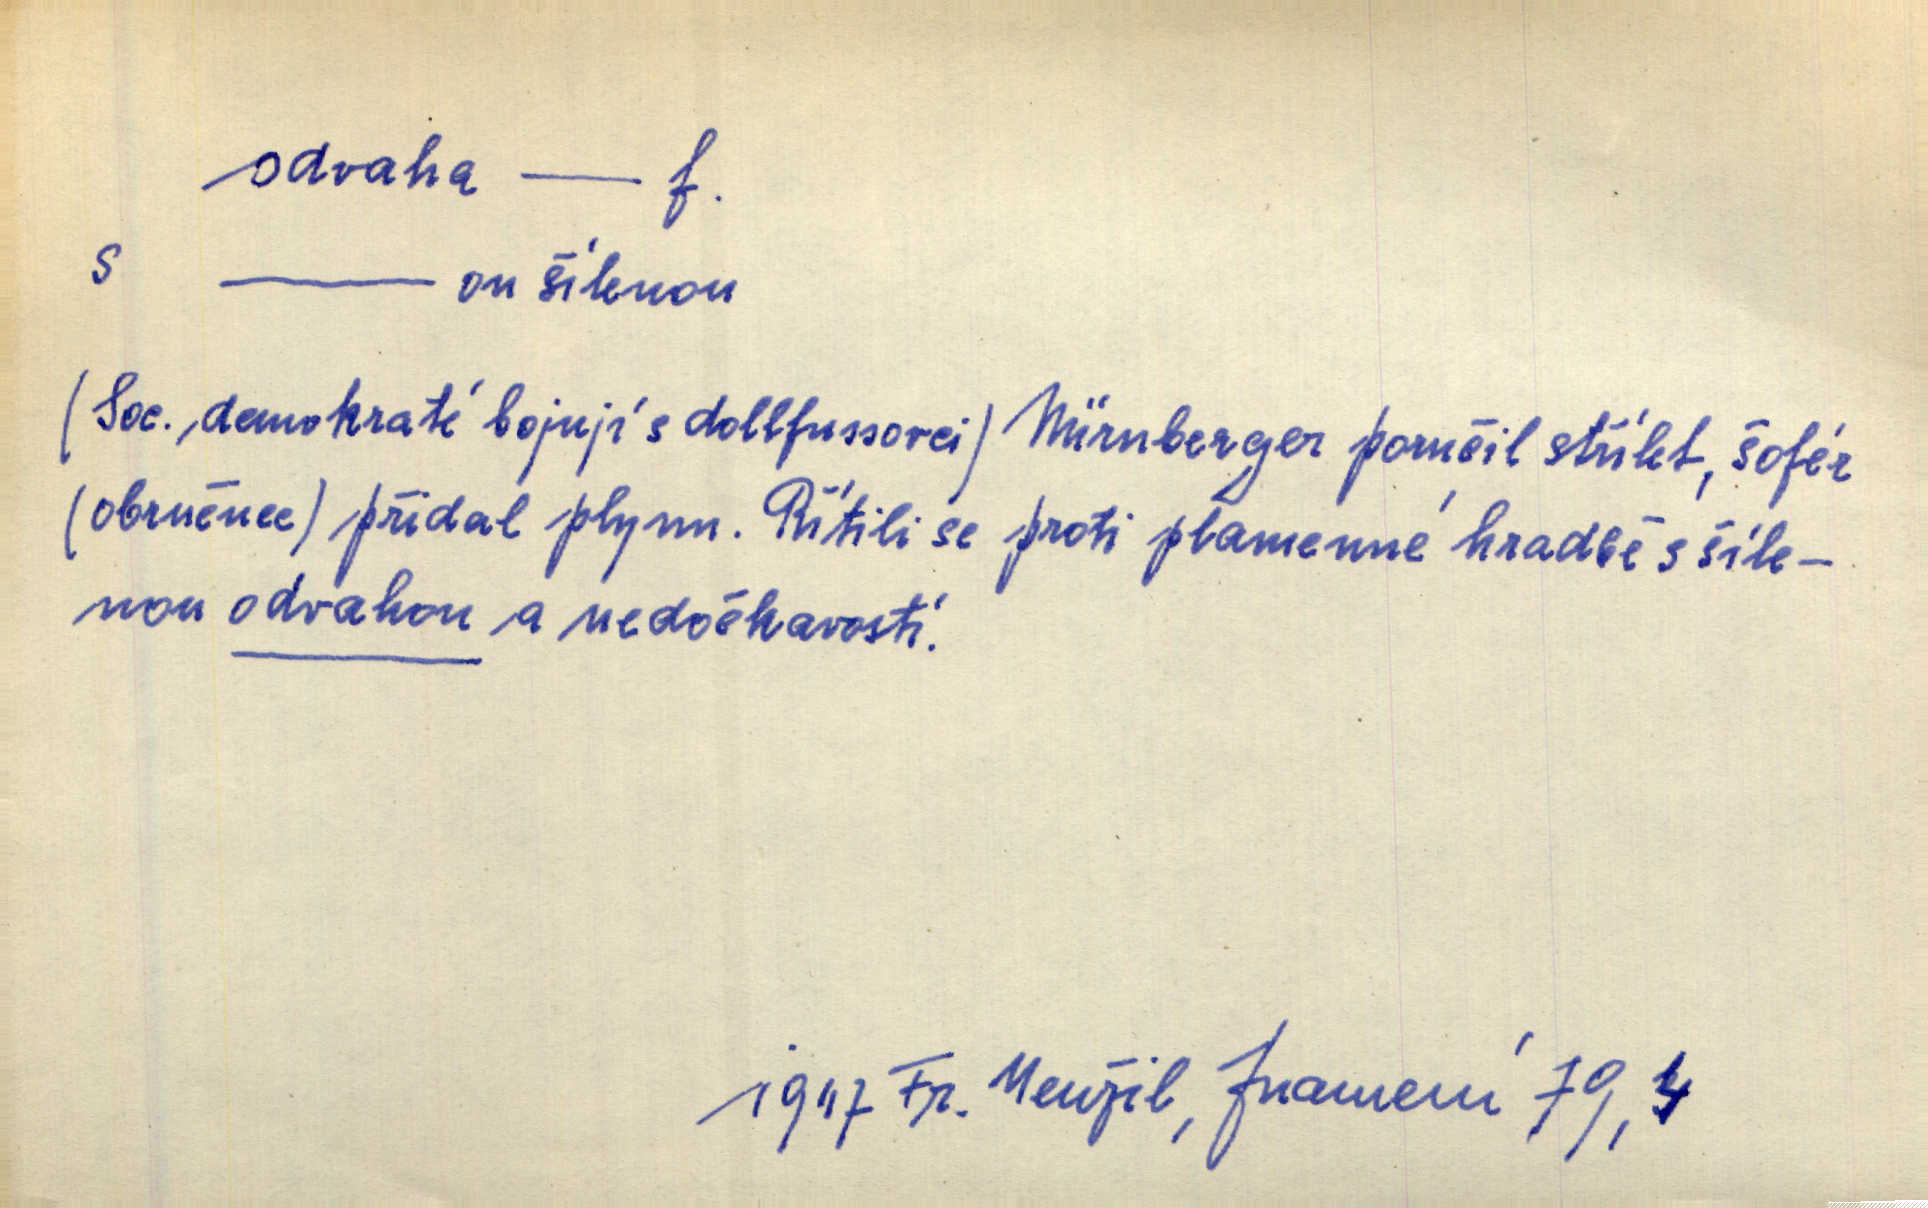 odvaha — f.
s — ou šílenou
(Soc. demokraté bojují s dollfussovci) Nürnberger poručil střílet, šofér
(obrněnce) přidal plynu. Řítili se proti plamenné hradbě s šíle-
nou odvahou a nedočkavostí.
1947 Fr. Menžil, Znamení 79, 4